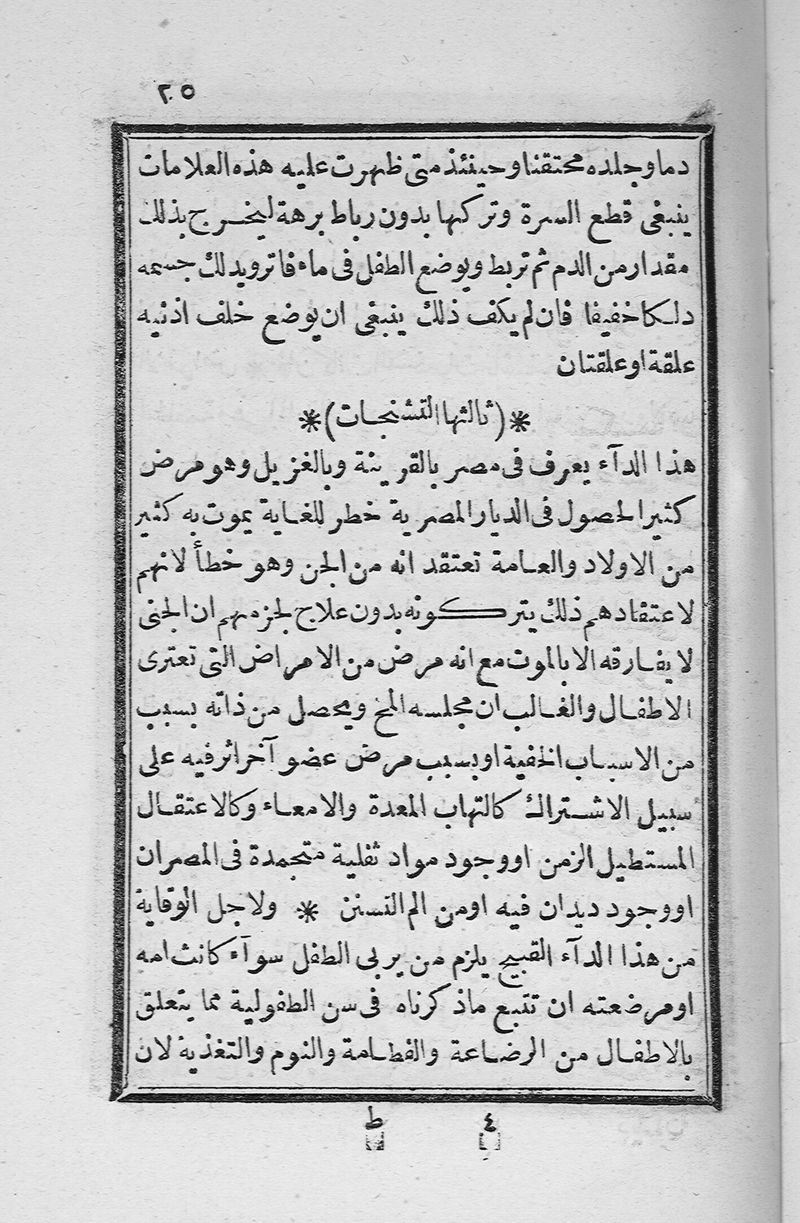 ٢٥
دما وجلده محتقنا وحينئذ متى ظهرت عليه هذه العلامات
ينبغى قطع السرة وتركها بدون رباط برهة ليخرج بذلك
مقدار من الدم ثم تربط ويوضع الطفل فى ماء فاتر ويدلك جسمه
دلكا خفيفا فان لم يكف ذلك ينبغى ان يوضع خلف اذنيه
علقة او علقتان
*(ثالثها التشنجات)*
هذا الدآء يعرف فى مصر بالقرينة وبالغزيل وهو مرض
كثير الحصول فى الديار المصرية خطر للغاية يموت به كثير
من الاولاد والعامة تعتقد انه من الجن وهو خطأ لانهم
لاعتقادهم ذلك يتركونه بدون علاج لجزمهم ان الجنى
لا يفارقه الا بالموت مع انه مرض من الامراض التى تعترى
الاطفال والغالب ان مجلسه المخ ويحصل من ذاته بسبب
من الاسباب الخفية او بسبب مرض عضو آخر اثر فيه على
سبيل الاشتراك كالتهاب المعدة والامعاء وكالاعتقال
المستطيل الزمن او وجود مواد ثفلية متجمدة فى المصران
او وجود ديدان فيه او من الم التسنن * ولاجل الوقاية
من هذا الدآء القبيح يلزم من يربى الطفل سوآء كانت امه
او مرضعته ان تتبع ماذكرناه فى سن الطفولية مما يتعلق
بالاطفال من الرضاعة والفطامة والنوم والتغذية لان
٤ ط